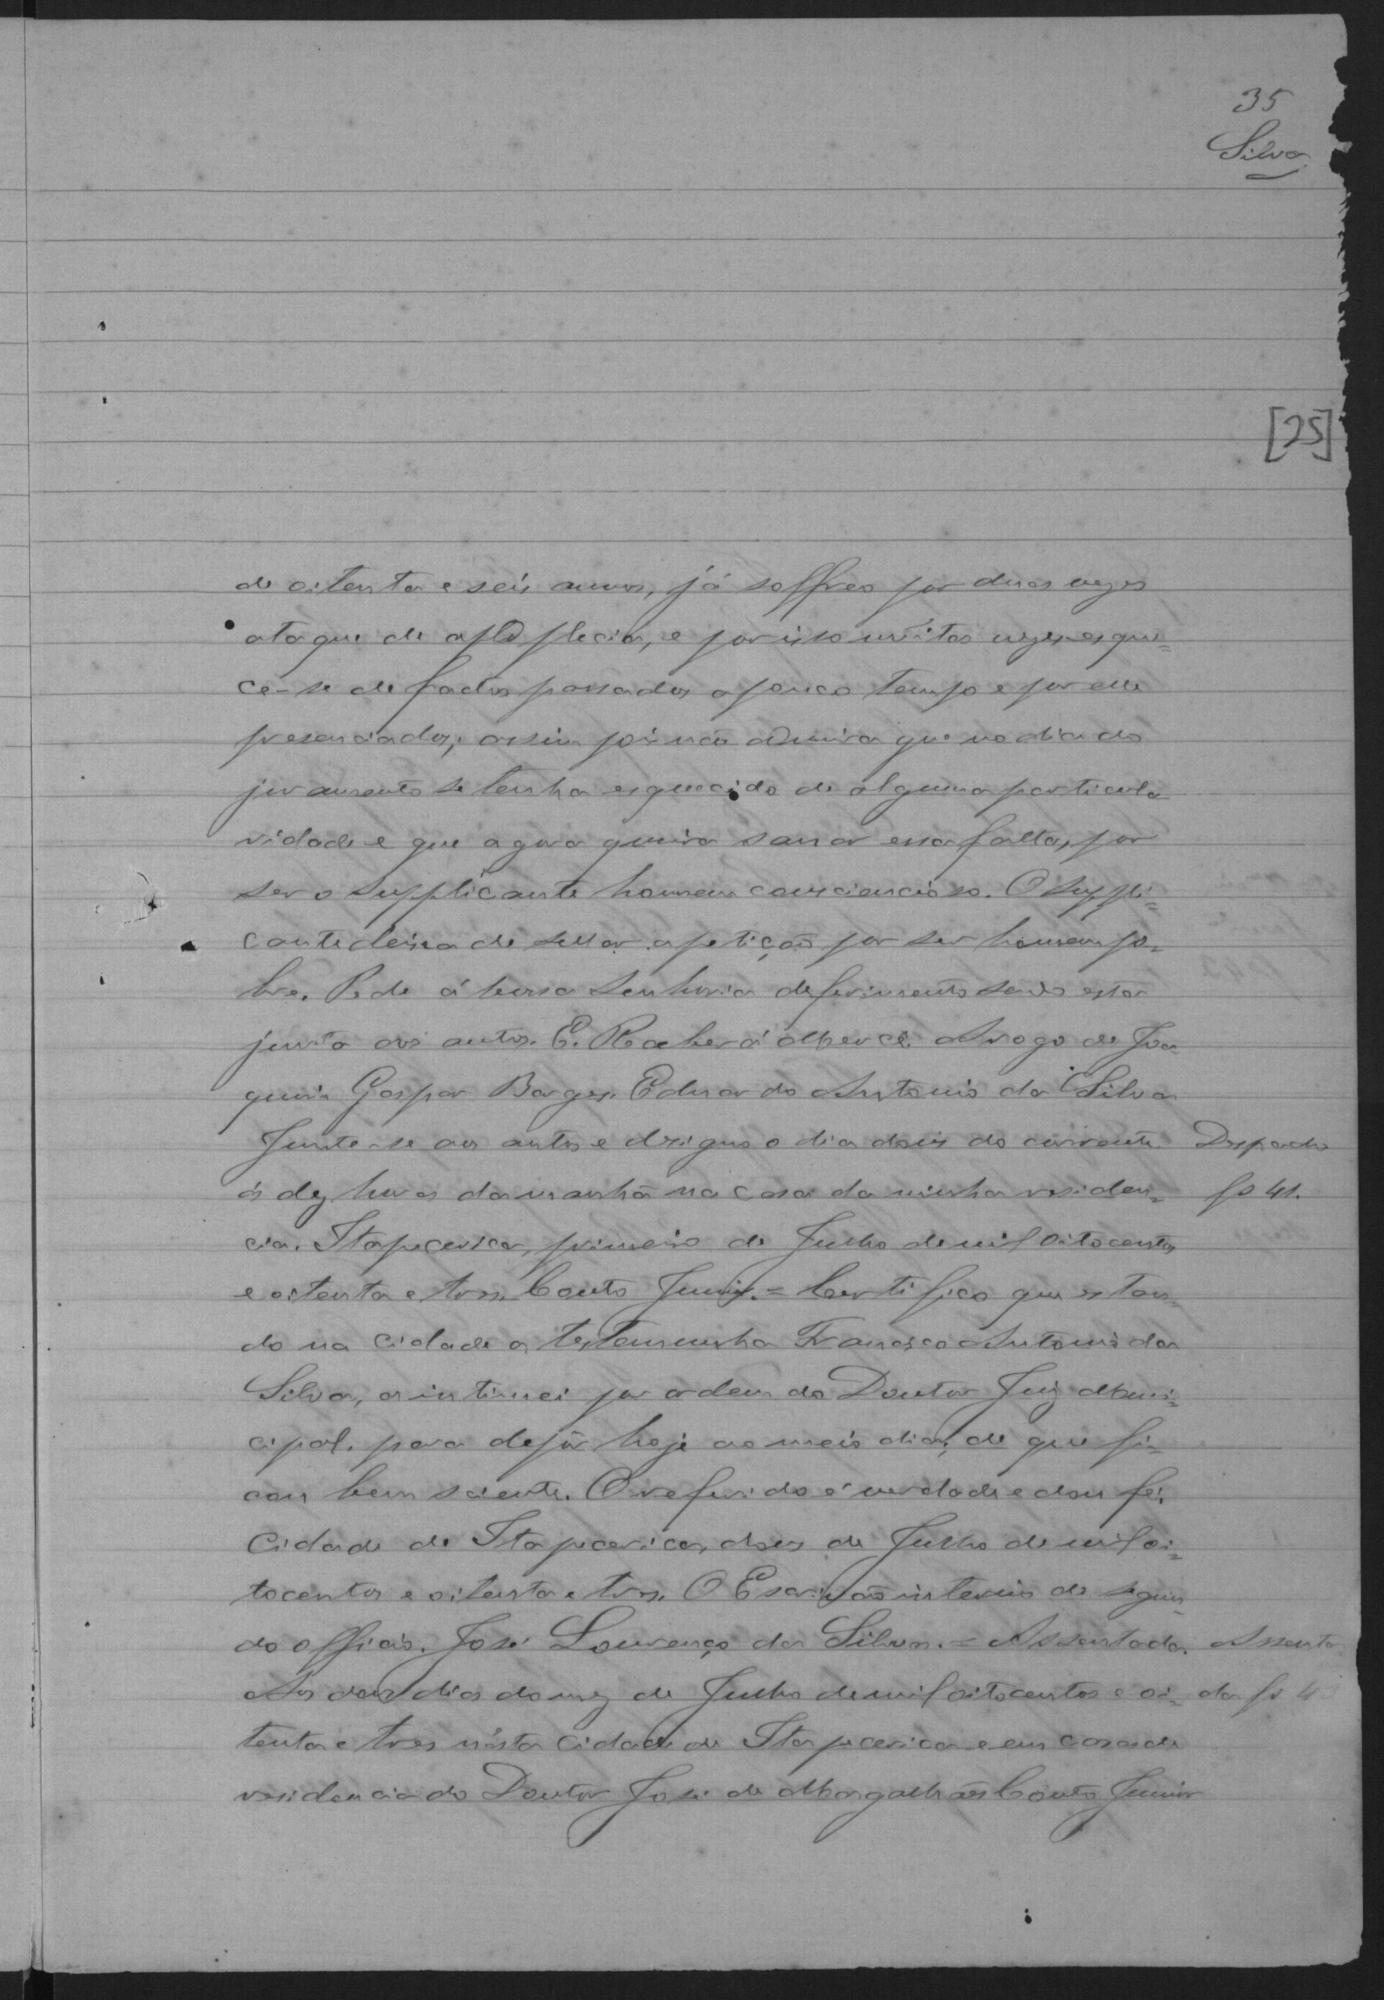 35
Silva
[25]
de oitenta e seis annos, já soffreo por duas vezes
ataque de apoplecia, e por isso muitas vezes esque=
ce-se de factos passados a pouco tempo e por elle
presenciados; assim pois não admira que no dia do
juramento se tenha esquecido de alguma particula
ridade e que agora queira sanar essa falta, por
ser o supplicante homem consciencioso. O suppli=
cante deixa de sellar a petição por ser homem po=
bre. Pede á Vossa Senhoria deferimento sendo esta
junta aos autos. E. Receberá Mercê. A rogo de Joa
quim Gaspar Borges. Eduardo Antonio da Silva
Junte-se aos autos e designo o dia dois do corrente Despacho
ás dez horas da manhã na casa da minha residen= fs 41.
cia. Itapecerica, primeiro de Julho de mil oitocentos
e oitenta e tres. Couto Junior. = Certifico que estan
do na cidade a testemunha Francisco Antonio da
Silva, a intimei por ordem do Doutor Juiz Muni=
cipal, para depôr hoje ao meio dia, de que fi=
cou bem sciente. O referido é verdade e dou fé.
Cidade de Itapecerica, dois de Julho de mil oi=
tocentos e oitenta e tres. O Escrivão interino do segun
do officio. José Lourenço da Silva. = Assentada. Assenta
Aos dois dias do mez de Julho de mil oitocentos e oi= da fs
tenta e tres nésta Cidade de Itapecerica e em casa de
residencia do Doutor José de Magalhães Couto Junior